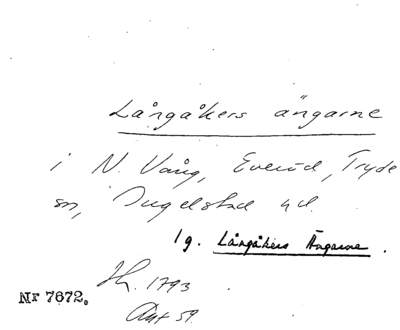 Långåkers ängarne
i N. Vång, Everöd, Tryde
sn, Ingelstad hd.
1 g. Långåkers Ängarne.
1793
Nr 7672.
Akt 59.